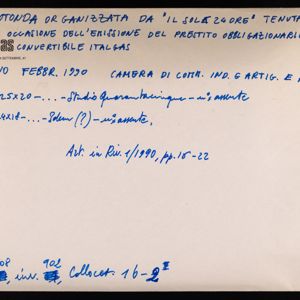 OTONDA ORGANIZZATA DA "IL SOLE 24 ORE" TENUTA
OCCASIONE DELL'EMISSIONE DEL PRESTITO OBBLIGAZIONARIO
CONVERTIBILE ITALGAS
as
NO FEBBR. 1990 CAMERA DI COMM. IND. E ARTIG. E A
25x20 - ... - Studio Quarantacinque - n° assente
4x18 - ... - (?) - n° assente.
Art. in Riv. 1/1990, pp. 15-22
08 902
inv. Collocaz. 16-2